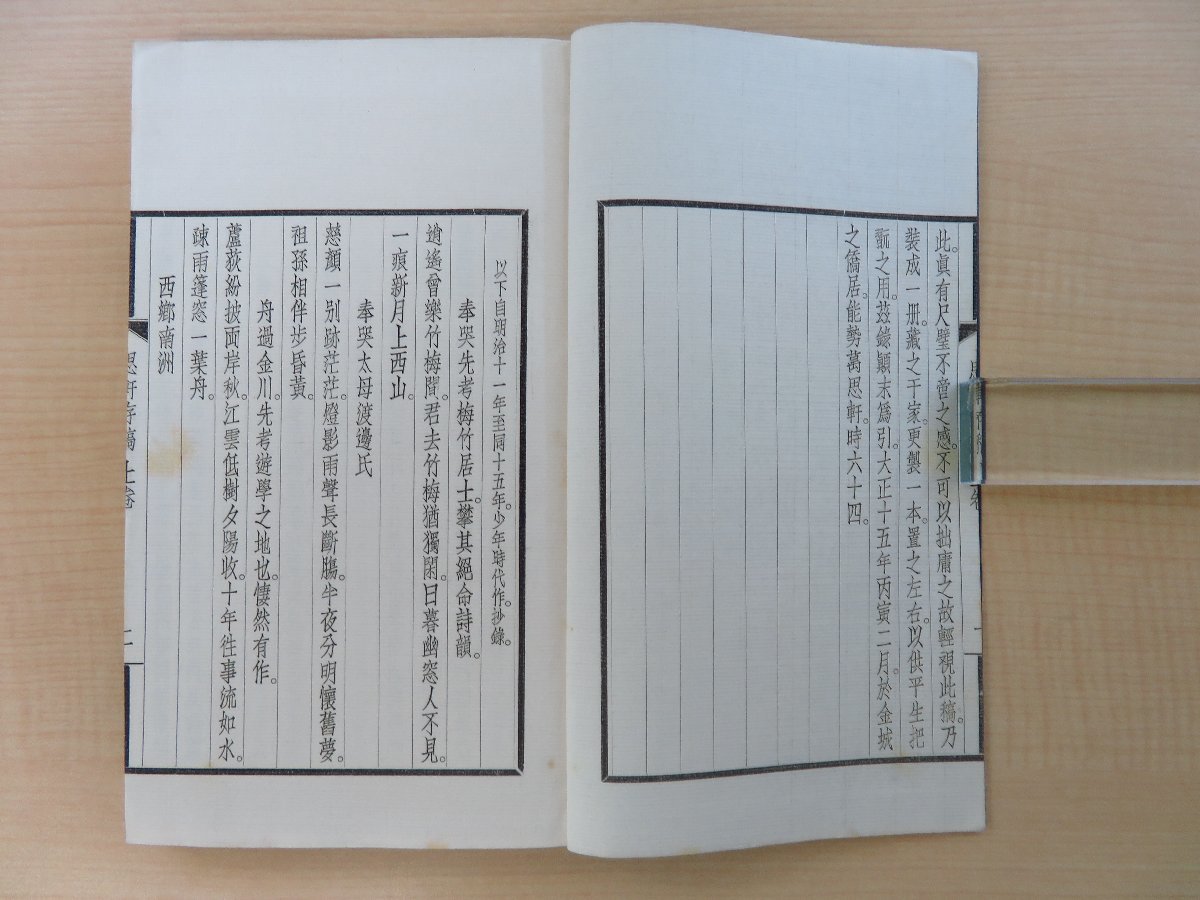 此。眞有尺璧不啻之感。不可以拙庸之故輕視此稿。乃
裝成一册。藏之于家。更製一本。置之左右。以供平生把
翫之用。茲錄顚末爲引。大正十五年丙寅二月。於金城
之僑居。能勢萬思軒。時六十四。
以下自明治十一年至同十五年。少年時代作。抄錄。
奉哭先考梅竹居士。攀其絕命詩韻。
逍遙曾樂竹梅間。君去竹梅猶獨閑。日暮幽窓人不見。
一痕新月上西山。
奉哭太母渡邊氏
慈顏一別跡茫茫。燈影雨聲長斷腸。半夜分明懷舊夢。
祖孫相伴步昏黃。
舟過金川。先考遊學之地也。悽然有作。
蘆荻紛披両岸秋。江雲低樹夕陽收。十年徃事流如水。
疎雨篷窓一葉舟。
西鄉南洲
思軒存稿 上卷
二